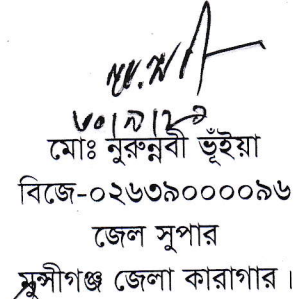 মোঃ নুরুন্নবী ভূঁইয়া
বিজে-০২৬৩৯০০০০৯৬
জেল সুপার
মুন্সীগঞ্জ জেলা কারাগার।